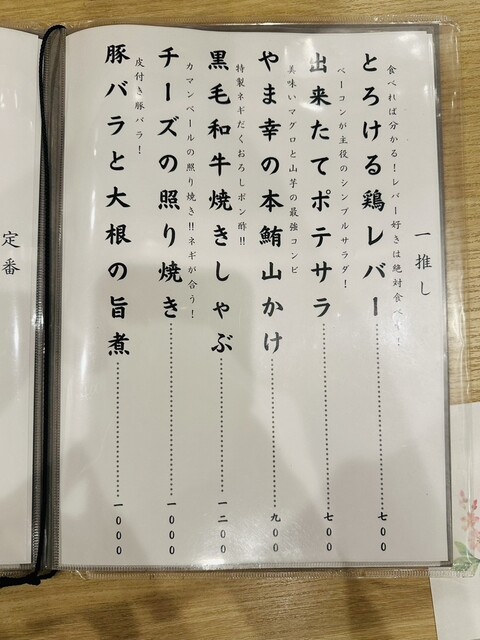 一推し
食べれば分かる！レバー好きは絶対食べて！
とろける鶏レバー 七〇〇
ベーコンが主役のシンプルサラダ！
出来たてポテサラ 七〇〇
美味いマグロと山芋の最強コンビ
やま幸の本鮪山かけ 九〇〇
特製ネギだくおろしポン酢！！
黒毛和牛焼きしゃぶ 一二〇〇
カマンベールの照り焼き！！ネギが合う！
チーズの照り焼き 一〇〇〇
皮付き豚バラ！
豚バラと大根の旨煮 一〇〇〇
定番